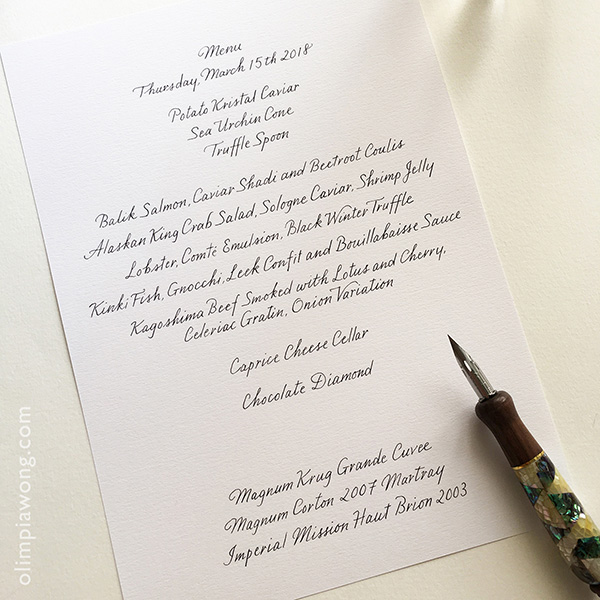 Menu
Thursday, March 15th 2018
Potato Kristal Caviar
Sea Urchin Cone
Truffle Spoon
Balik Salmon, Caviar Shadi and Beetroot Coulis
Alaskan King Crab Salad, Sologne Caviar, Shrimp Jelly
Lobster, Comté Emulsion, Black Winter Truffle
Kinki Fish, Gnocchi, Leek Confit and Bouillabaisse Sauce
Kagoshima Beef Smoked with Lotus and Cherry,
Celeriac Gratin, Onion Variation
Caprice Cheese Cellar
Chocolate Diamond
Magnum Krug Grande Cuvee
Magnum Corton 2007 Martray
Imperial Mission Haut Brion 2003
olimpiawong.com